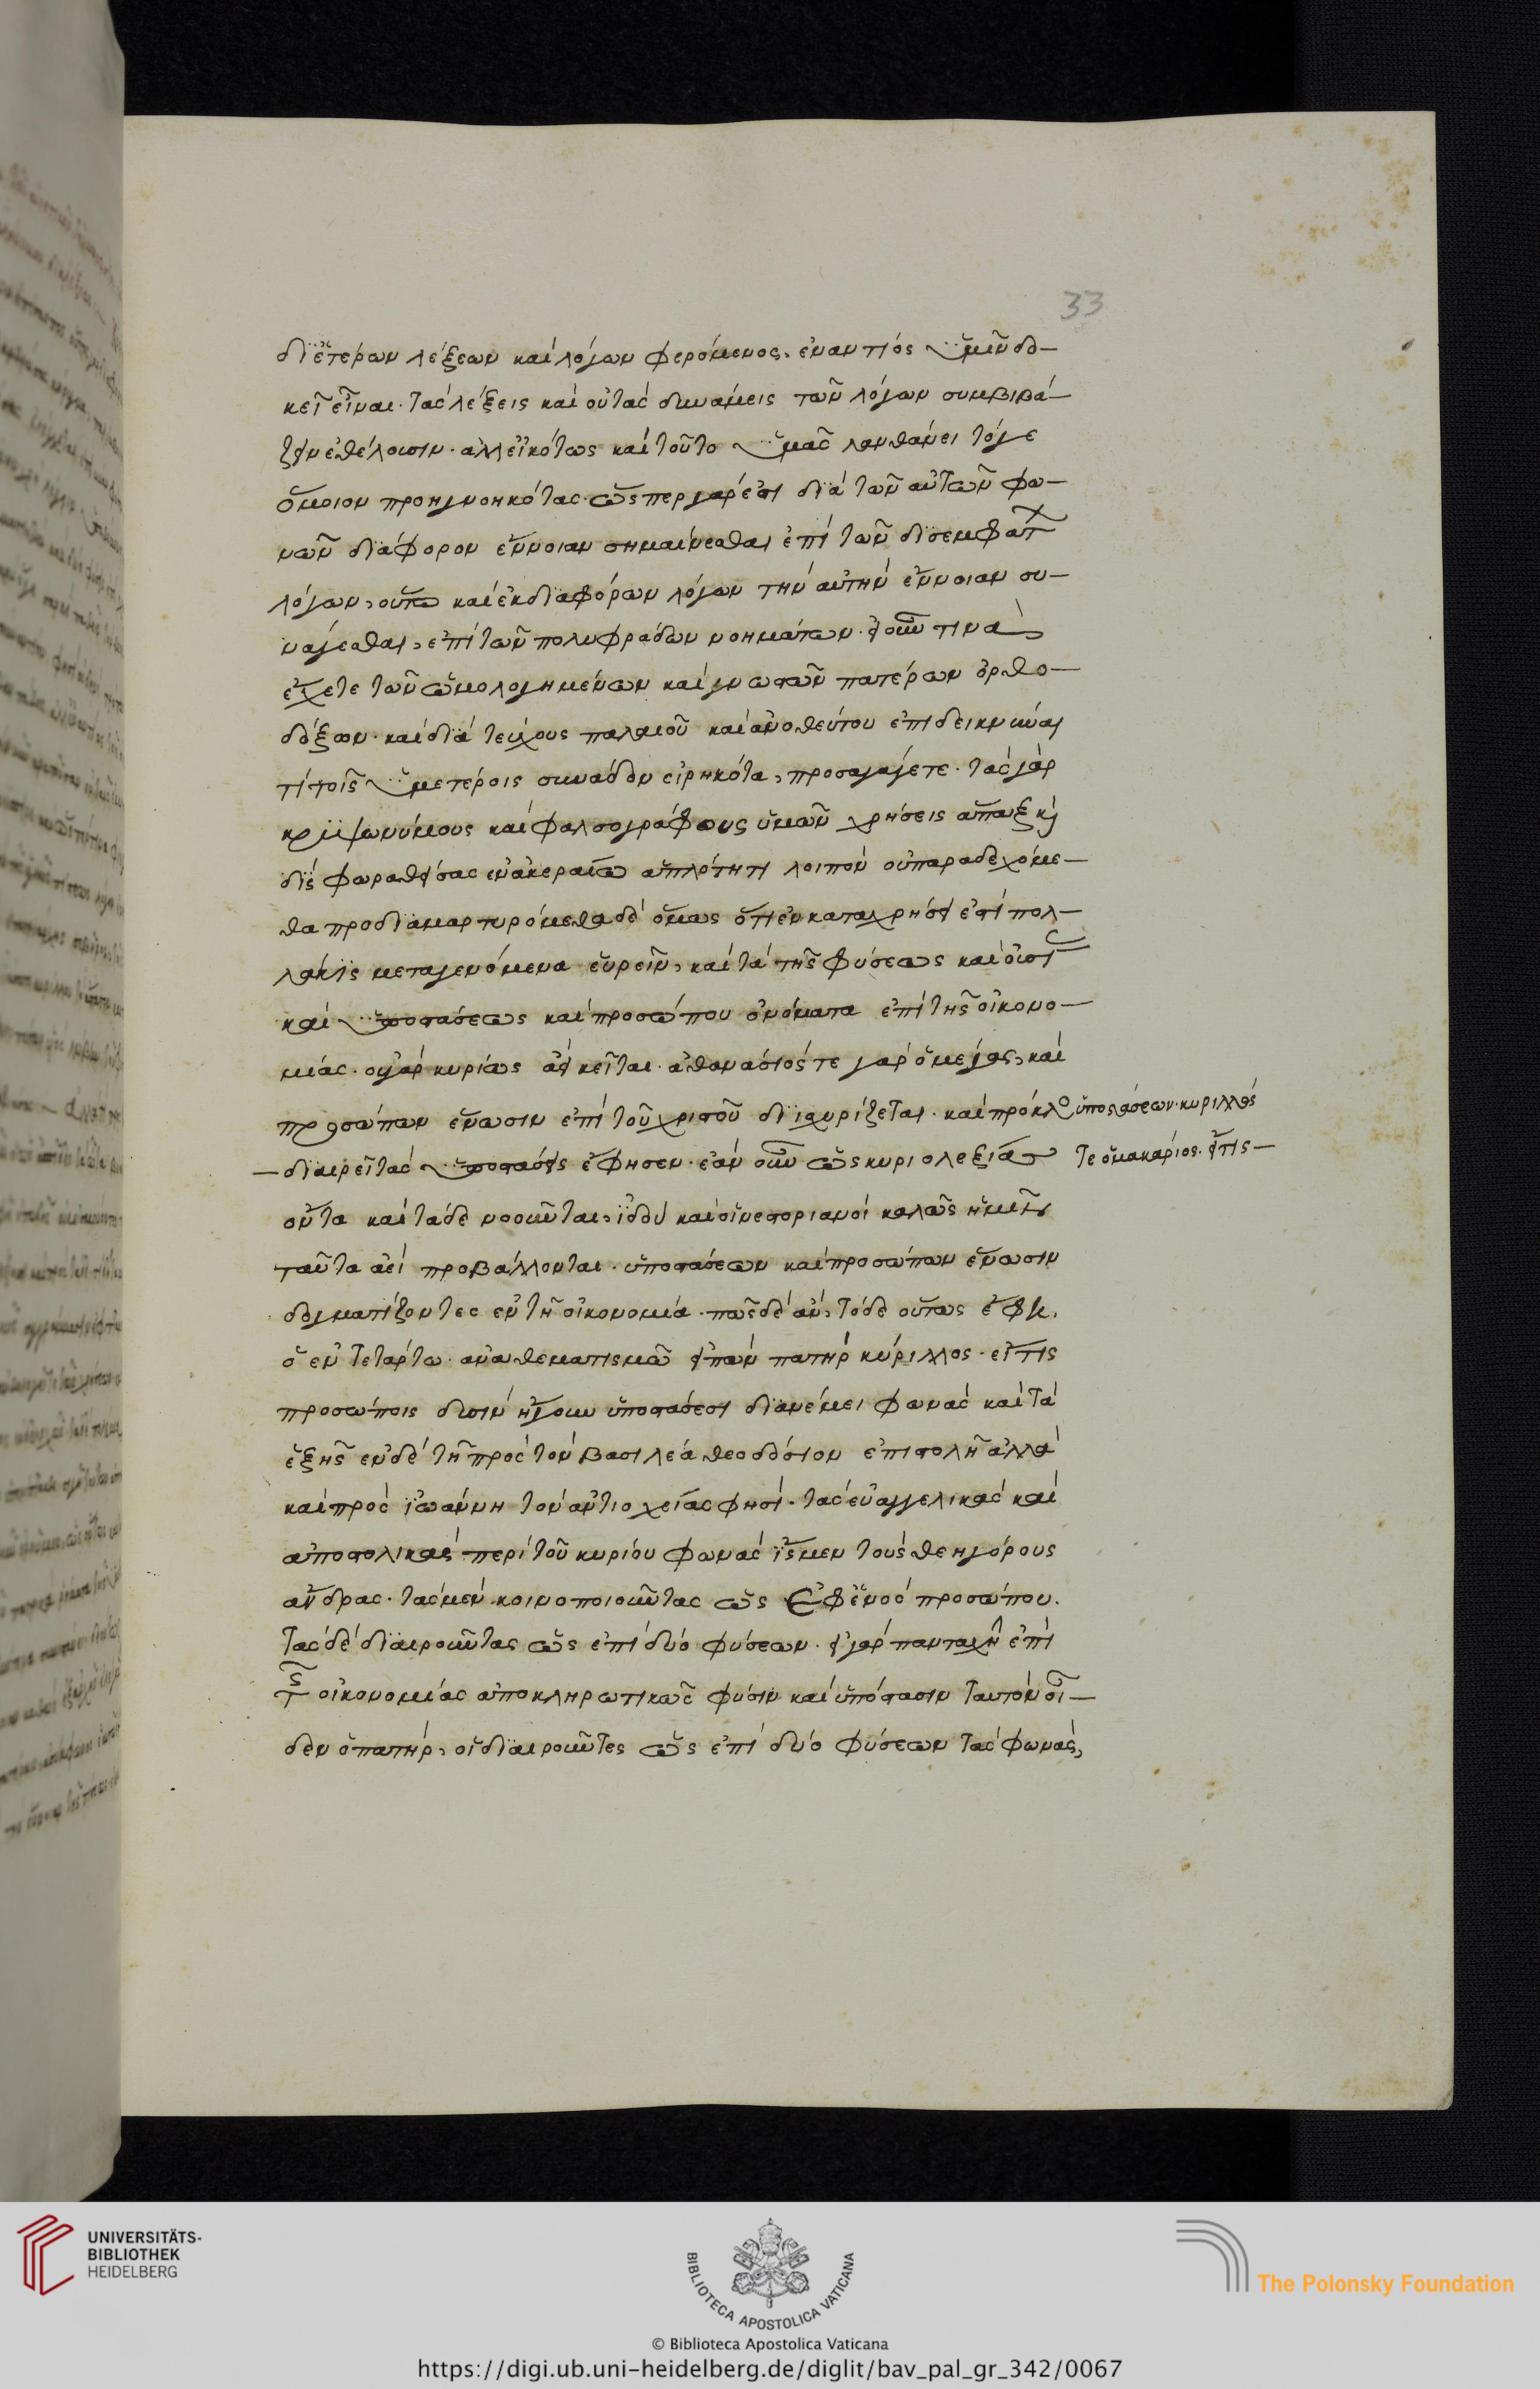 33
δι ἑτέρων λέξεων καὶ λόγων φερόμενος, ἐναντίος ὑμῖν δο-
κεῖ εἶναι. τὰς λέξεις καὶ οὐ τὰς δυνάμεις τῶν λόγων συμβιβά-
ζειν ἐθέλουσιν. ἀλλ εἰκότως καὶ τοῦτο ὑμᾶς λανθάνει τόγε
ὅμοιον προηγνοηκότας. ὥσπερ γάρ ἐστι διὰ τῶν αὐτῶν φω-
νῶν διάφορον ἔννοιαν σημαίνεσθαι ἐπὶ τῶν δισεμφάτ
λόγων, οὕτω καὶ ἐκ διαφόρων λόγων τὴν αὐτὴν ἔννοιαν συ-
νάγεσθαι, ἐπὶ τῶν πολυφράδων νοημάτων. εἰ οὖν τινὰ
ἔχετε τῶν ὡμολογημένων καὶ γνωστῶν πατέρων ὀρθο-
δόξων. καὶ διὰ τεύχους παλαιοῦ καὶ ἀνοθεύτου ἐπιδεικνύναι
τί τοῖς ὑμετέροις συνάδον εἰρηκότα, προσαγάγετε. τὰς γὰρ
κρυψωνύμους καὶ φαλσογράφους ὑμῶν χρήσεις ἅπαξ καὶ
δὶς φωραθείσας ἐν ἀκεραίῳ ἁπλότητι λοιπὸν οὐ παραδεχόμε-
θα προδιαμαρτυρόμεθα δὲ ὅμως ὅτι ἐν καταχρήσει ἐστὶ πολ-
λάκις μεταγενόμενα εὑρεῖν, καὶ τὰ τῆς φύσεως καὶ οὐσί
καὶ ὑποστάσεως καὶ προσώπου ὀνόματα ἐπὶ τῆς οἰκονο-
μίας. οὐ γὰρ κυρίως ἀεὶ κεῖται. ἀθανάσιός τε γὰρ ὁ μέγας, καὶ
προσώπων ἕνωσιν ἐπὶ τοῦ χριστοῦ διισχυρίζεται. καὶ πρόκλο ὑποστάσεων. κυριλλός
τε ὁ μακάριος. εἴ τις -
- διαιρεῖ τὰς ὑποστάσεις ἔφησεν. ἐὰν οὖν ὡς κυριολεξίας
ὄντα καὶ τάδε νοοῦνται, ἰδοὺ καὶ οἱ νεστοριανοὶ καλῶς ἡμῖν
ταῦτα ἀεὶ προβάλλονται. ὑποστάσεων καὶ προσώπων ἕνωσιν
δογματίζοντες ἐν τῇ οἰκονομία. πῶς δὲ ἂν, τόδε οὕτως ἔφη.
ὁ ἐν τετάρτω. ἀναθεματισμῶ εἰπὼν πατὴρ κύριλλος. εἴ τις
προσώποις δυσὶν ἤγουν ὑποστάσεσι διανέμει φωνὰς καὶ τὰ
ἑξῆς ἐν δὲ τῇ πρὸς τὸν βασιλέα θεοδόσιον ἐπιστολῆ ἀλλὰ
καὶ πρὸς ἰωάννη τὸν ἀντιοχείας φησὶ. τὰς εὐαγγελικὰς καὶ
ἀποστολικὰς περὶ τοῦ κυρίου φωνὰς ἴσμεν τοὺς θεηγόρους
ἄνδρας. τὰς μὲν κοινοποιοῦντας ὡς ἐφ ἑνὸς προσώπου.
τὰς δὲ διαιροῦντας ὡς ἐπὶ δύο φύσεων. εἰ γὰρ πανταχῆ ἐπὶ
τῆς οἰκονομίας ἀποκληρωτικῶς φύσιν καὶ ὑπόστασιν ταυτὸν οἶ-
δεν ὁ πατὴρ, οἱ διαιροῦντες ὡς ἐπὶ δύο φύσεων τὰς φωνὰς,
UNIVERSITÄTS-
BIBLIOTHEK
HEIDELBERG
BIBLIOTECA APOSTOLICA VATICANA
The Polonsky Foundation
© Biblioteca Apostolica Vaticana
https://digi.ub.uni-heidelberg.de/diglit/bav_pal_gr_342/0067